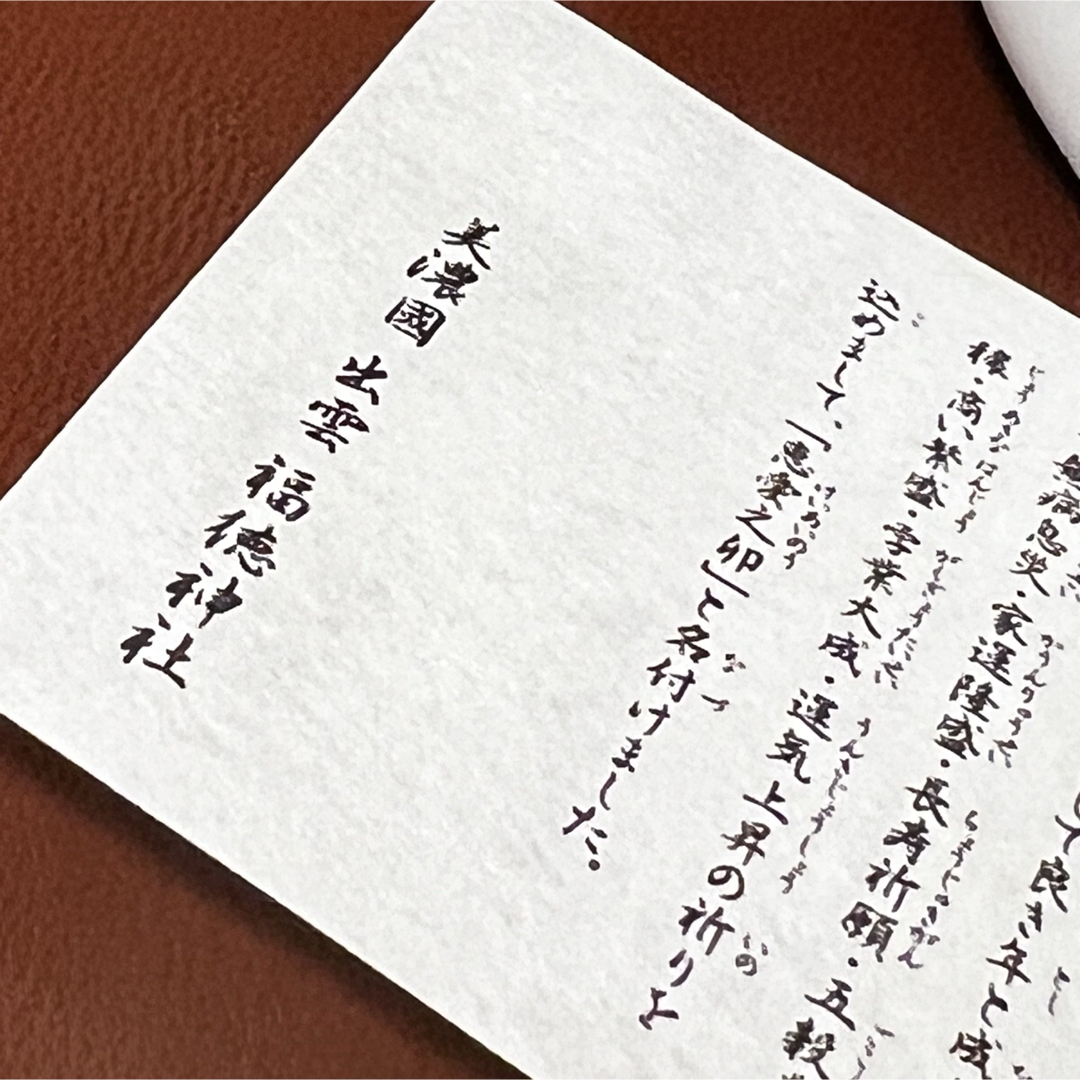 して良き年と成
無病息災・家運隆盛・長寿祈願・五穀
穣・商い繁盛・学業大成・運気上昇の祈りを
込めまして、「恵愛之卯」と名付けました。
美濃國 出雲 福徳神社